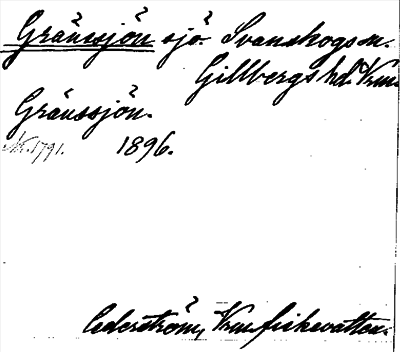 Gränssjön sjö. Svanskogs sn.
Gillbergs hd. Vrm.
Gränssjön.
1896.
Cederström, Vrm fiskevatten.